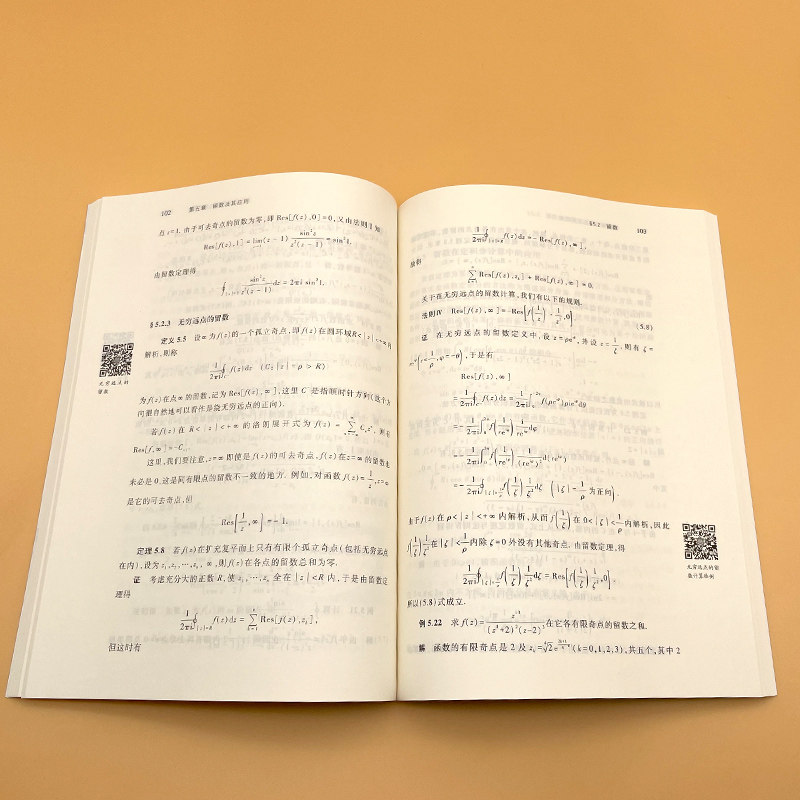 102 第五章 留数及其应用
点 z=1. 由于可去奇点的留数为零,即 Res[f(z),0]=0,又由法则Ⅱ知
Res[f(z),1]=lim(z-1) sin²z/z²(z-1) = sin²1.
由留数定理得
∮|z|=2 sin²z/z²(z-1) dz=2πi sin²1.
§5.2.3 无穷远点的留数
定义 5.5 设∞为 f(z)的一个孤立奇点,即 f(z)在圆环域 R<|z|<+∞内
解析,则称
1/2πi ∮ f(z)dz (C:|z|=ρ>R)
无穷远点的
留数
为 f(z)在点∞的留数,记为 Res[f(z),∞],这里 C⁻是指顺时针方向(这个方
向很自然地可以看作是绕无穷远点的正向).
若 f(z)在 R<|z|<+∞的洛朗展开式为 f(z)=
Res[f,∞]=-C₋₁.
这里,我们要注意,z=∞即使是 f(z)的可去奇点,f(z)在 z=∞的留数也
未必是 0,这是同有限点的留数不一致的地方. 例如,对函数 f(z)=1/z,z=∞
是它的可去奇点,但
Res[1/z,∞]=-1.
定理 5.8 若 f(z)在扩充复平面上只有有限个孤立奇点(包括无穷远点
在内),设为 z₁,z₂,…,zₙ,∞,则 f(z)在各点的留数总和为零.
证 考虑充分大的正数 R,使 z₁,…,zₙ全在|z|<R 内,于是由留数定
理得
1/2πi ∮|z|=R f(z)dz=∑ Res[f(z),zₖ],
但这时有
§5.2 留数 103
1/2πi ∮ f(z)dz=-Res[f(z),∞],
故得
∑ Res[f(z),zₖ]+Res[f(z),∞]=0.
关于在无穷远点的留数计算,我们有以下的规则.
法则Ⅳ Res[f(z),∞]=-Res[f(1/z)·1/z²,0]. (5.8)
证 在无穷远点的留数定义中,设 z=ρe^{iθ},并设 z=1/ζ,则有 ζ=
于是有
Res[f(z),∞]
=1/2πi ∮ f(z)dz=1/2πi ∫ f(ρe^{iθ})ρie^{iθ}dθ
(|ζ|=1/ρ为正向).
由于 f(z)在 ρ<|z|<+∞内解析,从而 f(1/ζ)在 0<|ζ|<1/ρ内解析,因此
f(1/ζ)1/ζ²在|ζ|<1/ρ内除 ζ=0 外没有其他奇点. 由留数定理,得
1/2πi ∮ f(1/ζ)1/ζ² dζ=Res[f(1/ζ)1/ζ²,0].
无穷远点的留
数计算举例
所以(5.8)式成立.
例 5.22 求 f(z)= 在它各有限奇点的留数之和.
解 函数的有限奇点是 2 及 (k=0,1,2,3),共五个,其中 2